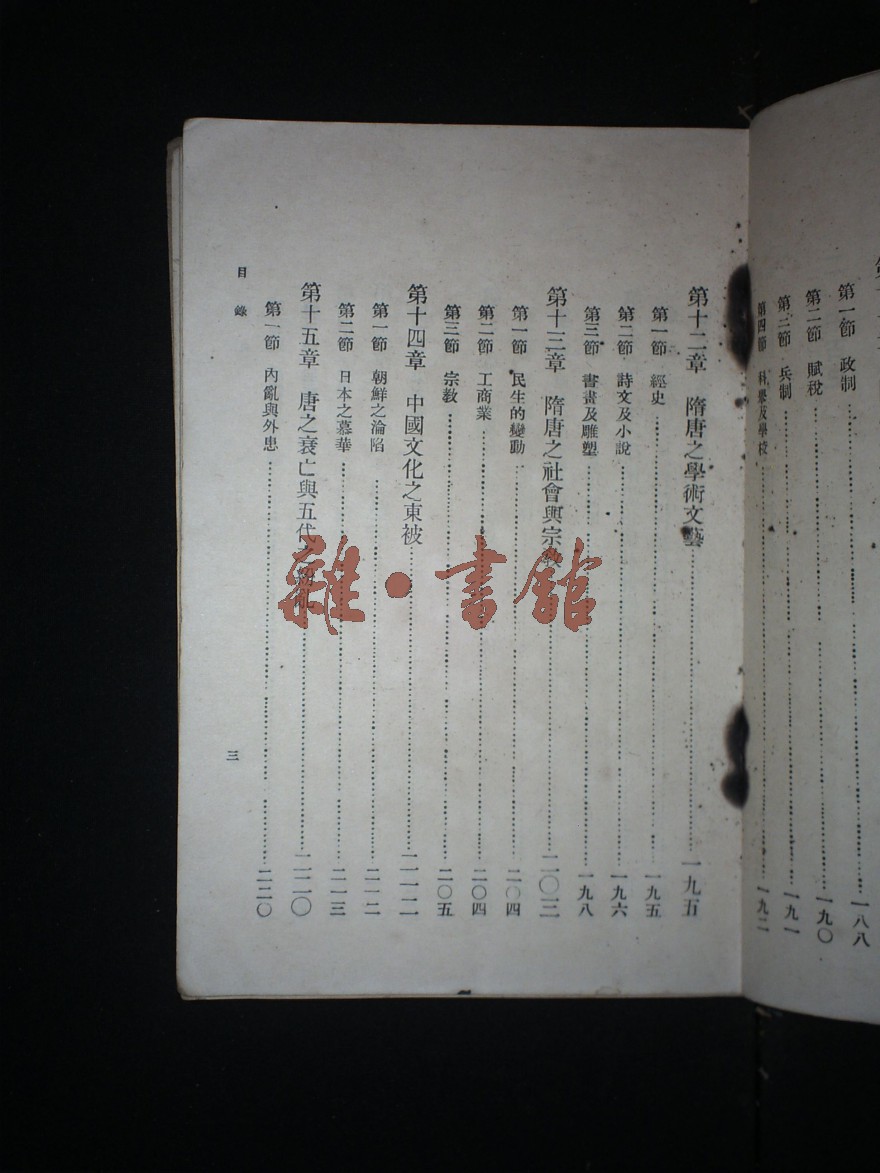 第一節 政制……一八八
第二節 賦稅……一九〇
第三節 兵制……一九一
第四節 科舉及學校……一九二
第十二章 隋唐之學術文藝……一九五
第一節 經史……一九五
第二節 詩文及小說……一九六
第三節 書畫及雕塑……一九八
第十三章 隋唐之社會與宗教……二〇三
第一節 民生的變動……二〇四
第二節 工商業……二〇四
第三節 宗教……二〇五
第十四章 中國文化之東被……二一二
第一節 朝鮮之淪陷……二一二
第二節 日本之慕華……二一三
第十五章 唐之衰亡與五代……二二〇
第一節 內亂與外患……二二〇
目錄
三
雜·書館